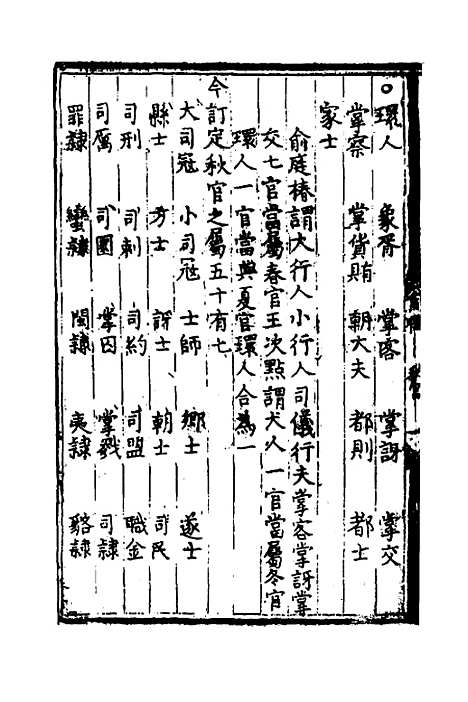 ○環人　象胥　掌客　掌訝　掌交
掌察　掌貨賄　朝大夫　都則　都士
家士
俞庭椿謂大行人小行人司儀行夫掌客掌訝掌
交七官當屬春官王次點謂犬人一官當屬冬官
環人一官當與夏官環人合為一
今訂定秋官之屬五十有七
大司冦　小司冦　士師　鄉士　遂士
縣士　方士　訝士　朝士　司民
司刑　司刺　司約　司盟　職金
司厲　司圜　掌囚　掌戮　司隸
罪隸　蠻隸　閩隸　夷隸　貉隸